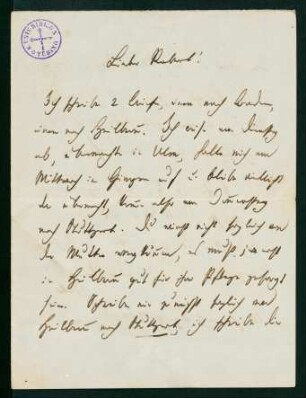 Lieber Robert!
Ich schreibe 2 Briefe, einen nach Baden,
einen nach Heilbronn. Ich reise am Dienstag
ab, übernachte in Ulm, halte mich am
Mittwoch in Giengen auf u. bleibe vielleicht
da übernacht, komme also am Donnerstag
nach Stuttgart. Du wirst nicht sogleich an
der Mutter, es muß ja auch
in Heilbronn gut für ihre Pflege gesorgt
sein. Schreibe mir zunächst sogleich von
Heilbronn nach Stuttgart, ich schreibe Dir